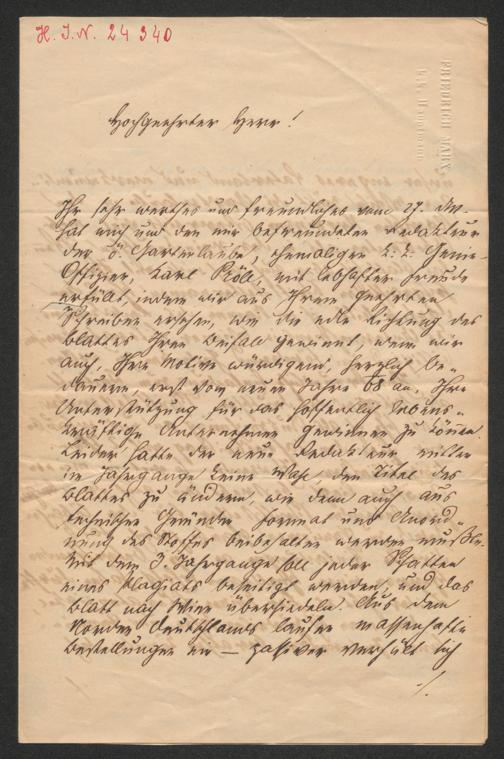 H. I. N. 24 340
FRIEDRICH MARX
Hochgeehrter Herr!
Ihr sehr werthes und freundliches vom 27. dM.
hat mich und den mir befreundeten Redakteur
der ö. Gartenlaube, ehemaligen k. k. Genie-
Offizier, Karl Pröll, mit lebhafter Freude
erfüllt, indem wir aus Ihrem geehrten
Schreiben ersehen, wie die edle Richtung des
Blattes Ihren Beifall gewinnt, wenn wir
auch, Ihre Motive würdigend, herzlich be-
dauern, erst vom neuen Jahre 68 an, Ihre
Unterstützung für das hoffentlich lebens-
kräftige Unternehmen gewinnen zu können.
Leider hatte der neue Redakteur mitten
im Jahrgange keine Wahl, den Titel des
Blattes zu ändern, wie denn auch aus
technischen Gründen Format und Anord-
nung des Stoffes beibehalten werden mußte.
Mit dem 3. Jahrgange soll jeder Schatten
eines Plagiats beseitigt werden, und das
Blatt nach Wien übersiedeln. Aus dem
Norden Deutschlands laufen massenhafte
Bestellungen ein — passiver verhält sich
./.